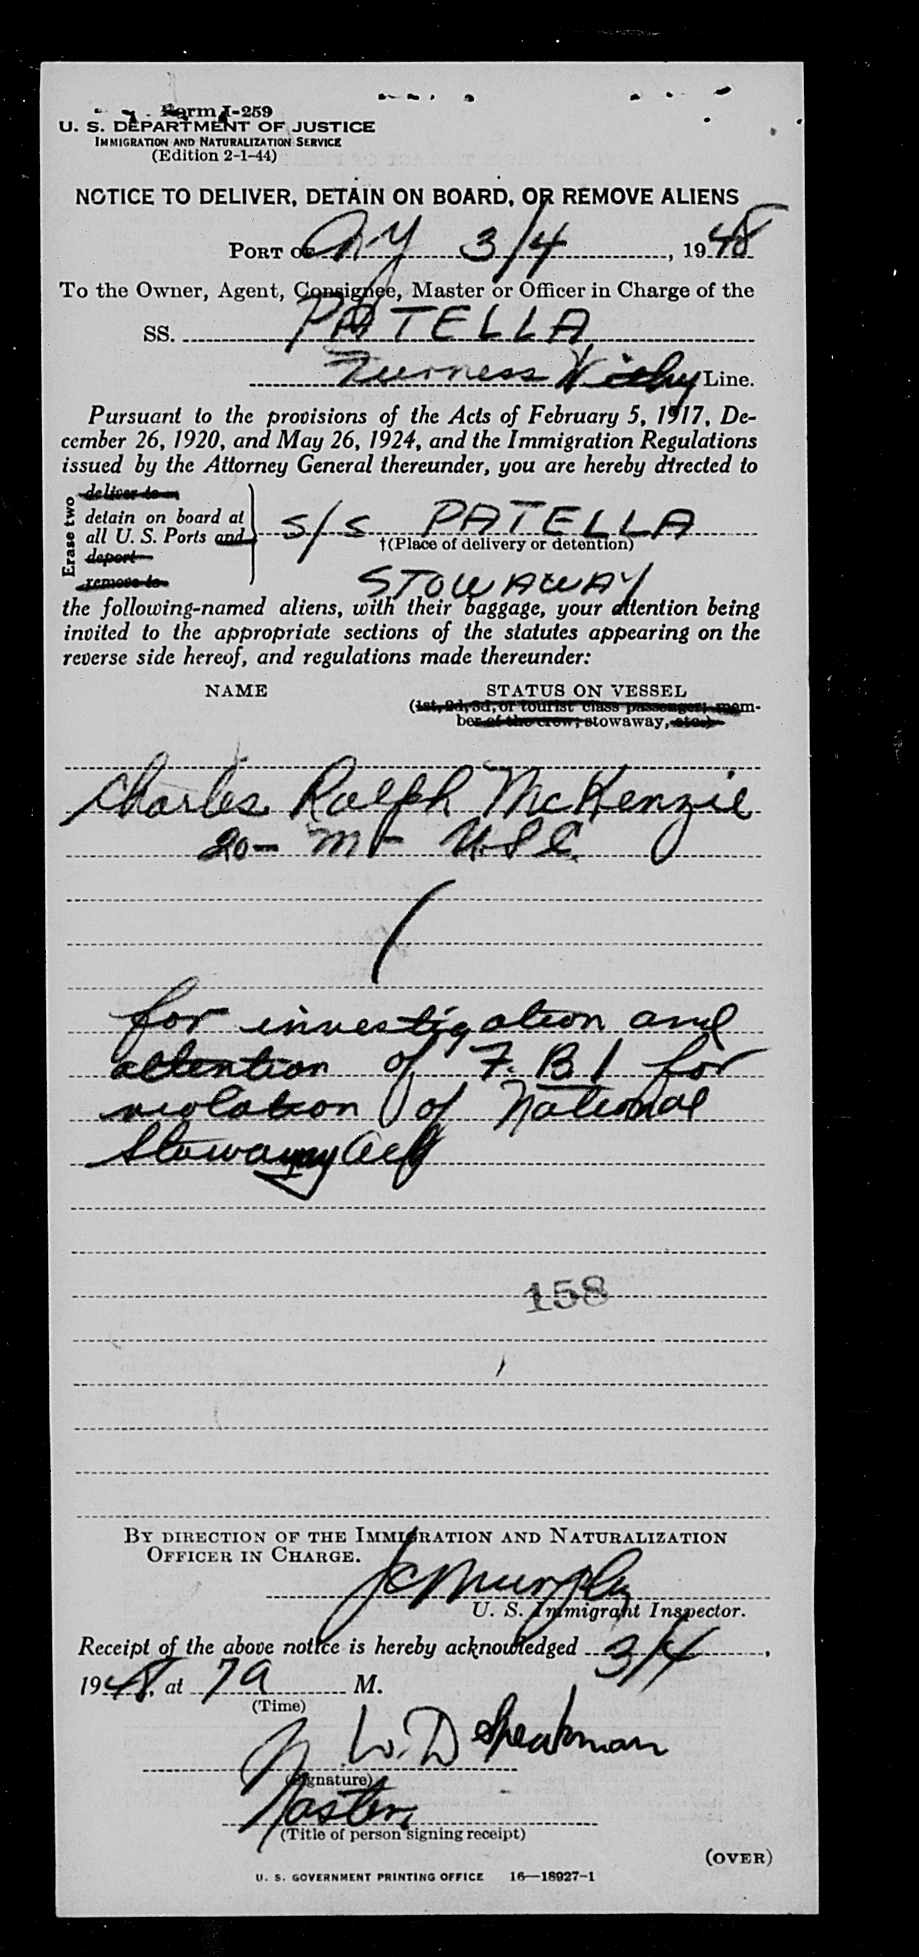 Form I-259
U. S. DEPARTMENT OF JUSTICE
IMMIGRATION AND NATURALIZATION SERVICE
(Edition 2-1-44)
NOTICE TO DELIVER, DETAIN ON BOARD, OR REMOVE ALIENS
PORT OF NY 3/4, 1948
To the Owner, Agent, Consignee, Master or Officer in Charge of the
SS. PATELLA
Furness Withy Line.
Pursuant to the provisions of the Acts of February 5, 1917, De-
cember 26, 1920, and May 26, 1924, and the Immigration Regulations
issued by the Attorney General thereunder, you are hereby directed to
Erase two
deliver to
detain on board at
all U. S. Ports and
deport
remove to
S/S PATELLA
†(Place of delivery or detention)
STOWAWAY
the following-named aliens, with their baggage, your attention being
invited to the appropriate sections of the statutes appearing on the
reverse side hereof, and regulations made thereunder:
NAME STATUS ON VESSEL
(1st, 2d, 3d, or tourist class passenger; mem-
ber of the crew; stowaway, etc.)
Charles Ralph McKenzie
20- M- U.S.C.
for investigation and
attention of F.B.I for
violation of National
Stowaway Act
158
BY DIRECTION OF THE IMMIGRATION AND NATURALIZATION
OFFICER IN CHARGE.
JC Murphy
U. S. Immigrant Inspector.
Receipt of the above notice is hereby acknowledged 3/4,
1948, at 7 a M.
(Time)
W. D Speakman
(Signature)
Master
(Title of person signing receipt)
(OVER)
U. S. GOVERNMENT PRINTING OFFICE 16—18927-1